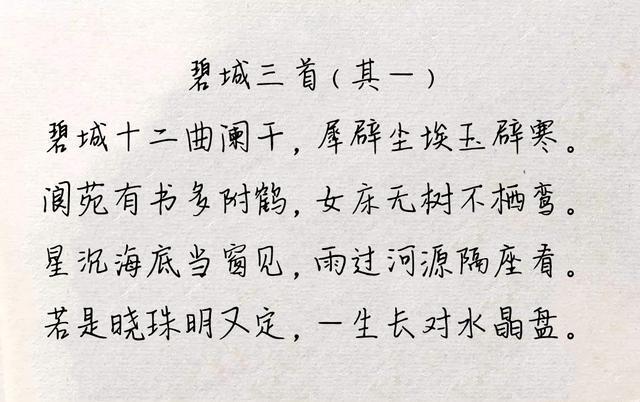 碧城三首(其一)
碧城十二曲阑干,犀辟尘埃玉辟寒。
阆苑有书多附鹤,女床无树不栖鸾。
星沉海底当窗见,雨过河源隔座看。
若是晓珠明又定,一生长对水晶盘。